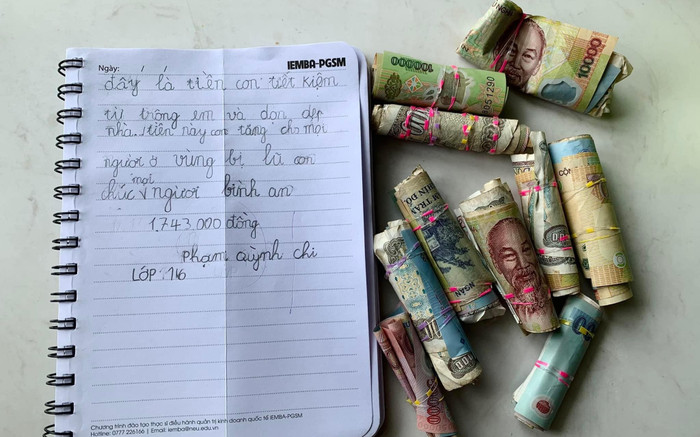 Ngày:
IEMBA-PGSM
đây là tiền con tiết kiệm
từ trông em và dọn dẹp
nhà. tiền này con tặng cho mọi
người ở vùng bị lũ con
chúc mọi người bình an
1,743.000 đồng
Phạm quỳnh chi
LỚP 1
Chương trình đào tạo thạc sĩ điều hành quản trị kinh doanh quốc tế IEMBA-PGSM
Hotline: 0777 226166 | Email: iemba@neu.edu.vn
100000
10000